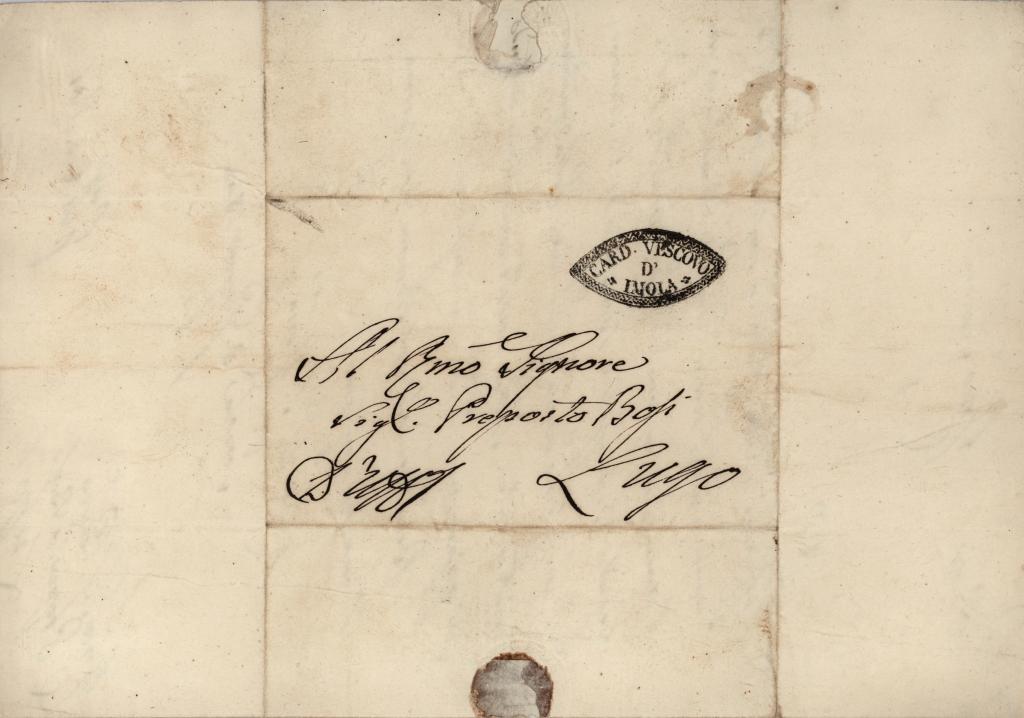 CARD. VESCOVO
D'
IMOLA
Al Rmo Signore
Sigr. Preposto Bosi
Lugo